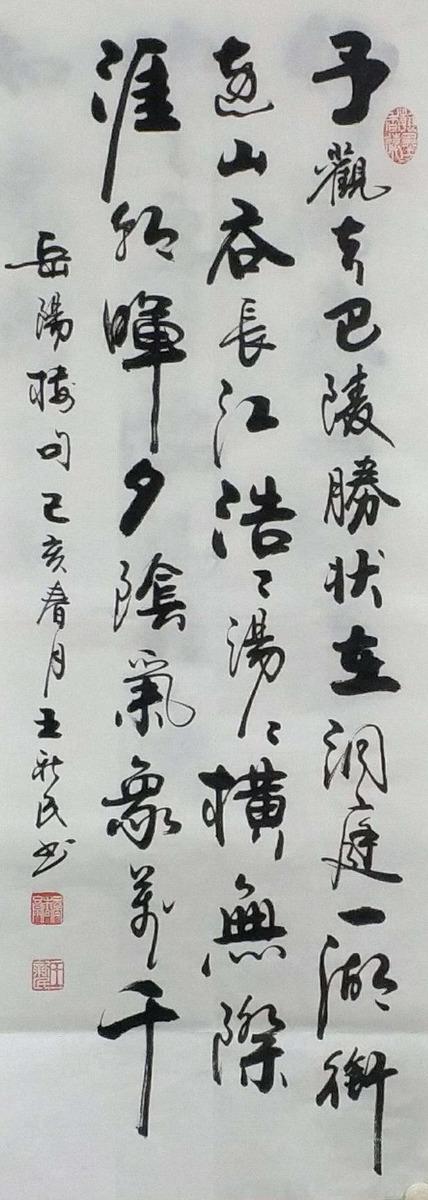 予觀夫巴陵勝狀在洞庭一湖銜
遠山吞長江浩〻湯〻橫無際
涯朝暉夕陰氣象萬千
岳陽樓句己亥春月王新民书